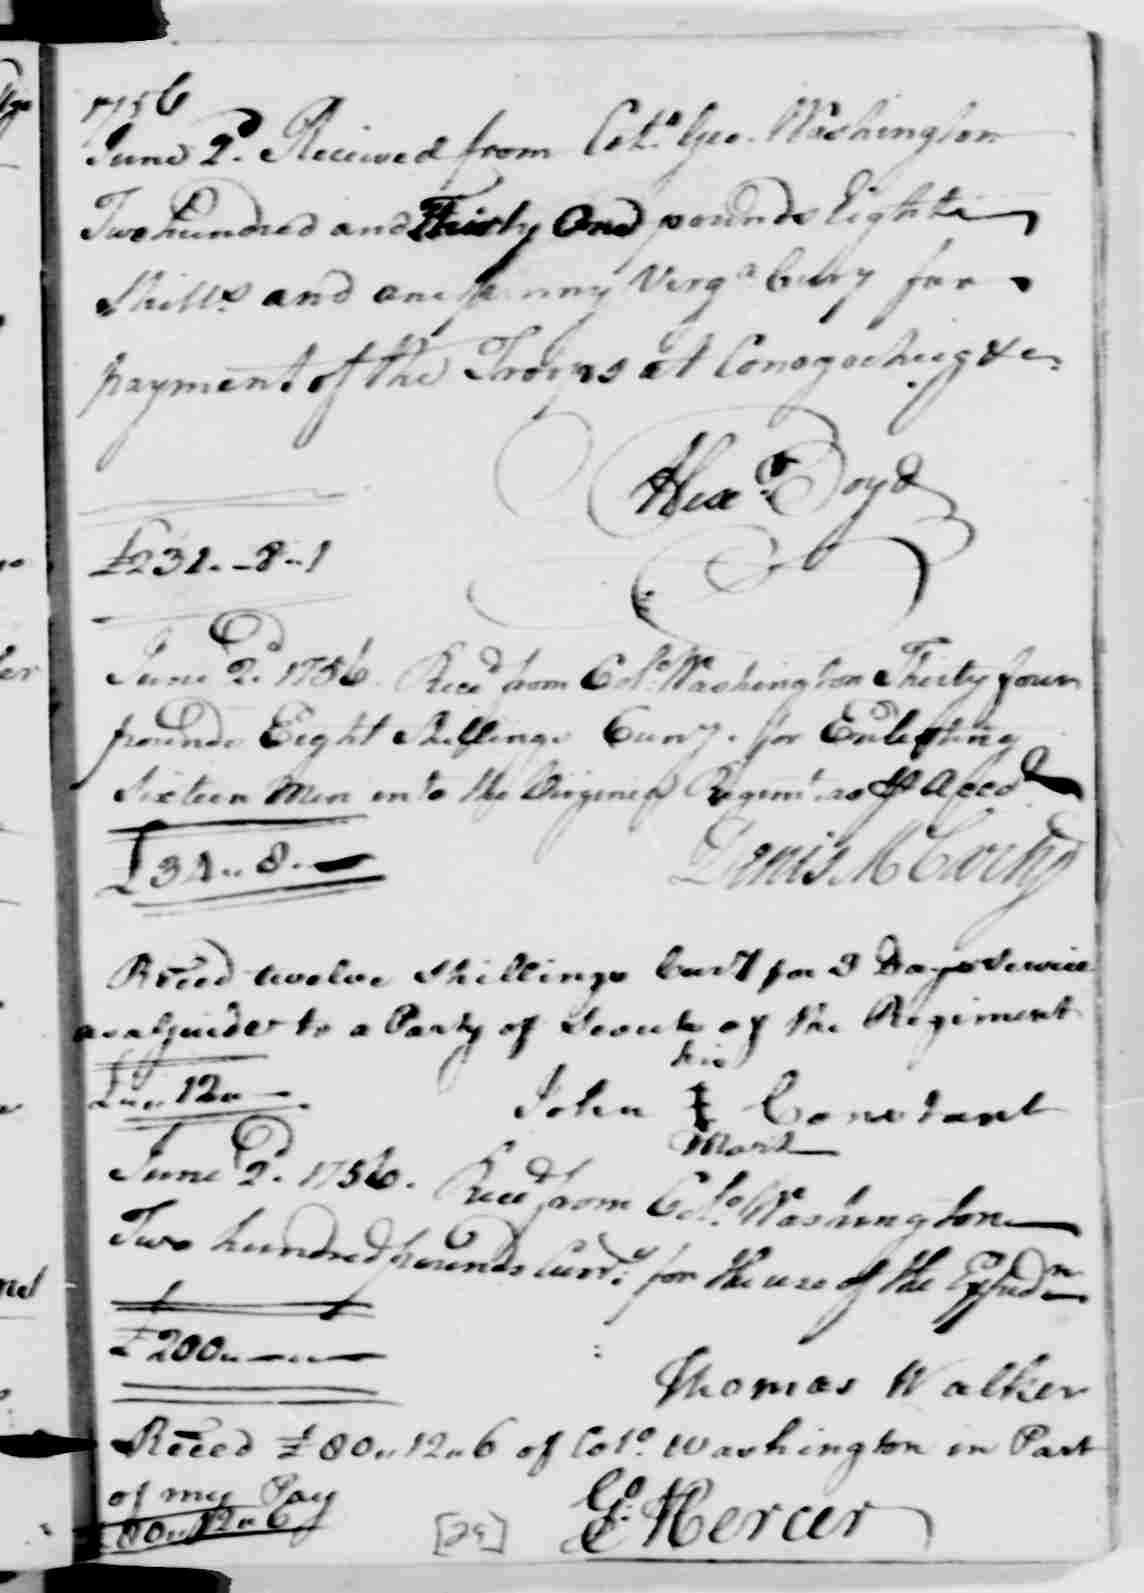 1756
June 2d. Received from Colo. Geo. Washington
Two hundred and Thirty One pounds Eight
Shills. and one penny Virga. Curry for
payment of the Troops at Conogocheig &c
Alexr. Boyd
£231.-8-1
June 2d. 1756. Recd from Colo. Washington Thirty four
pounds Eight Shillings Curry. for Enlisting
Sixteen Men into the Virginia Regimt. as ⅌ Accd
£34.. 8.-
Denis McCarthy
Reced twelve Shillings Curry for 3 Days Service
as a guider to a Party of Scouts of the Regiment
his
£.. 12.. -
John Constant
Mark
June 2d. 1756. Recd from Colo. Washington
Two hundred pounds Curry. for the use of the Expedn.
£200.. - .. -
Thomas Walker
Reced £80.. 12.. 6 of Colo. Washington in Part
of my Pay
£80.. 12.. 6
Go: Mercer
[29]